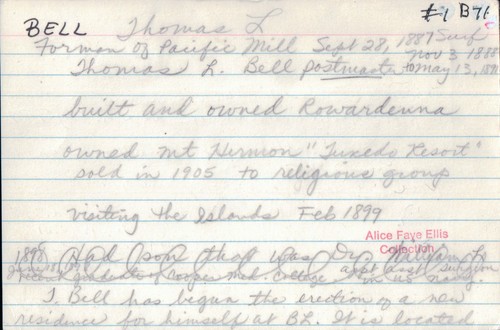 BELL Thomas L #1 B71
Forman of Pacific Mill Sept 28, 1887 Surf
Nov 3 1888
Thomas L. Bell postmaster to May 13, 189
built and owned Rowardenna
owned Mt Hermon "Tuxedo Resort"
sold in 1905 to religious group
visiting the Islands Feb 1899
Alice Faye Ellis
Collection
1898 Had son that was Dr William L
student of Cooper Med College appt asst surgeon in US Navy
T. Bell has begun the erection of a new
residence for himself at BL. It is located